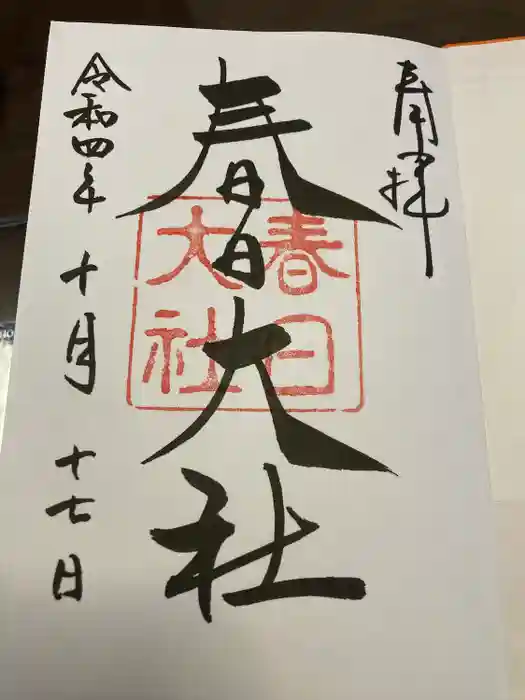 奉拝
春日大社
春日
大社
令和四年 十月 十七日